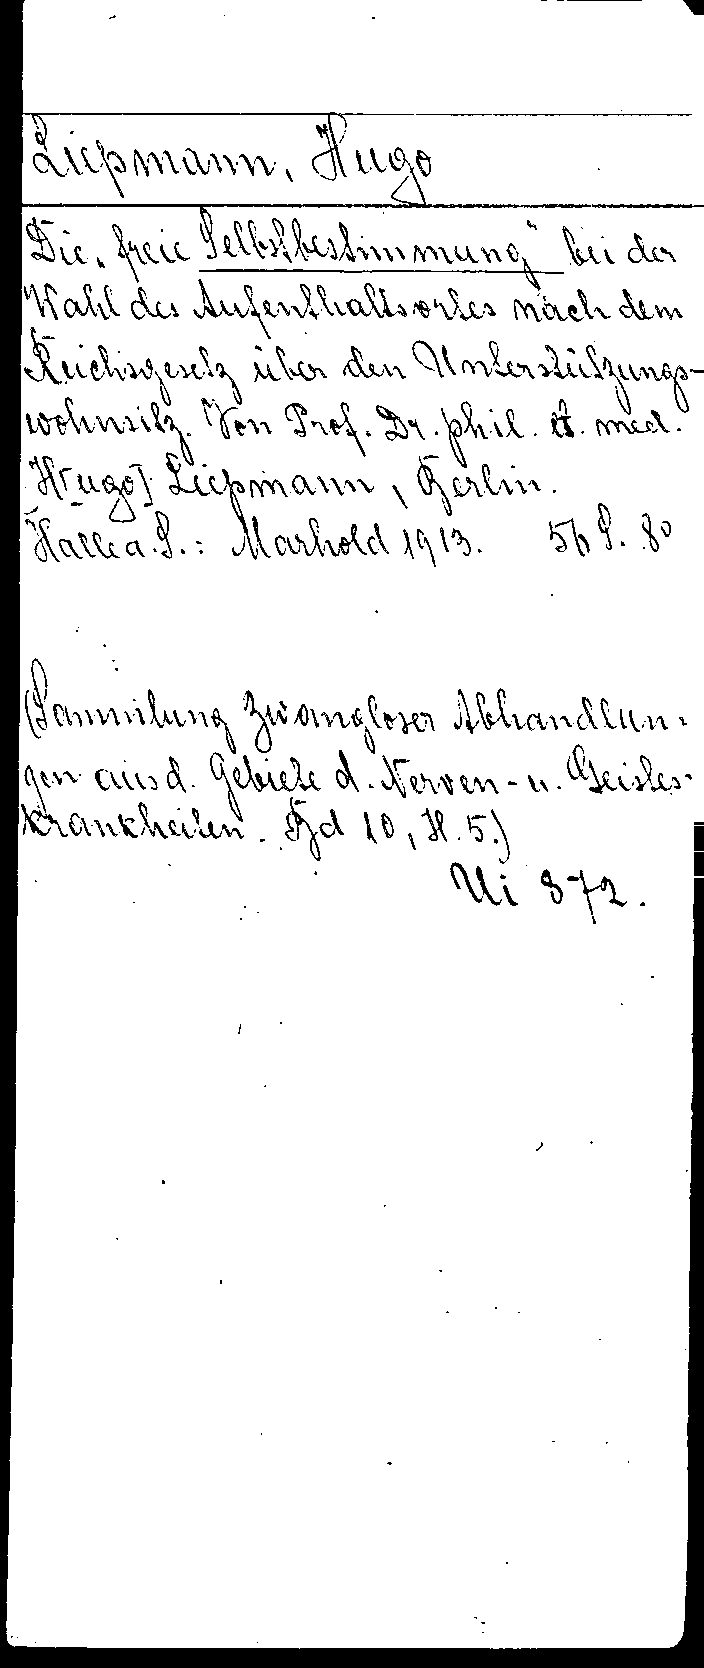 Liepmann, Hugo
Die „freie Selbstbestimmung" bei der
Wahl des Aufenthaltsortes nach dem
Reichsgesetz über den Unterstützungs-
wohnsitz. Von Prof. Dr. phil. et. med.
H[ugo] Liepmann, Berlin.
Halle a. S.: Marhold 1913. 56 S. 8°
(Sammlung zwangloser Abhandlun-
gen aus d. Gebiete d. Nerven- u. Geistes-
krankheiten. Bd 10, H. 5.)
Ui 872.